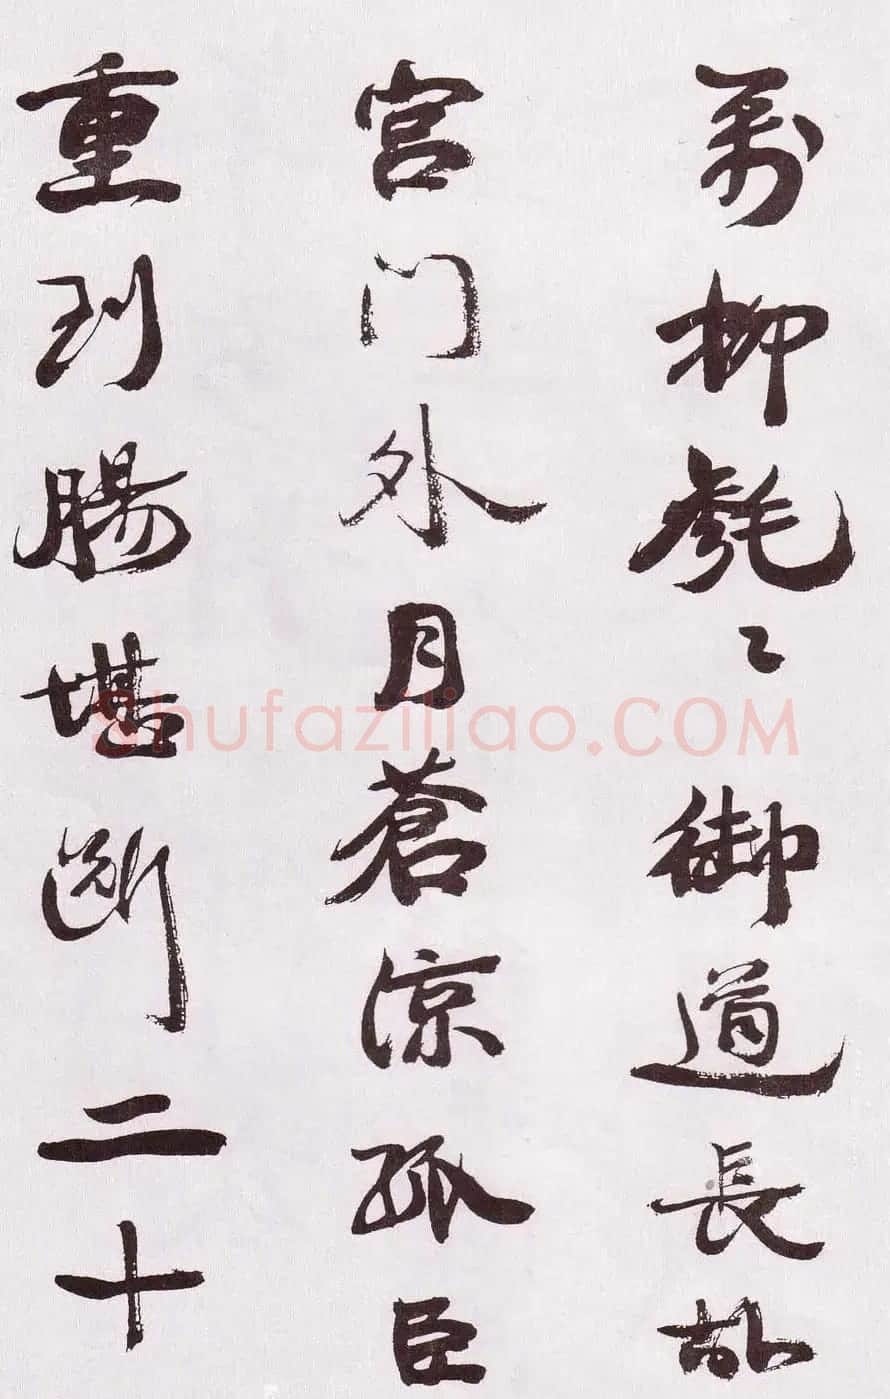 万柳毿〻御道長故
宮門外月蒼涼孤臣
重到腸堪断二十
Shufaziliao.COM